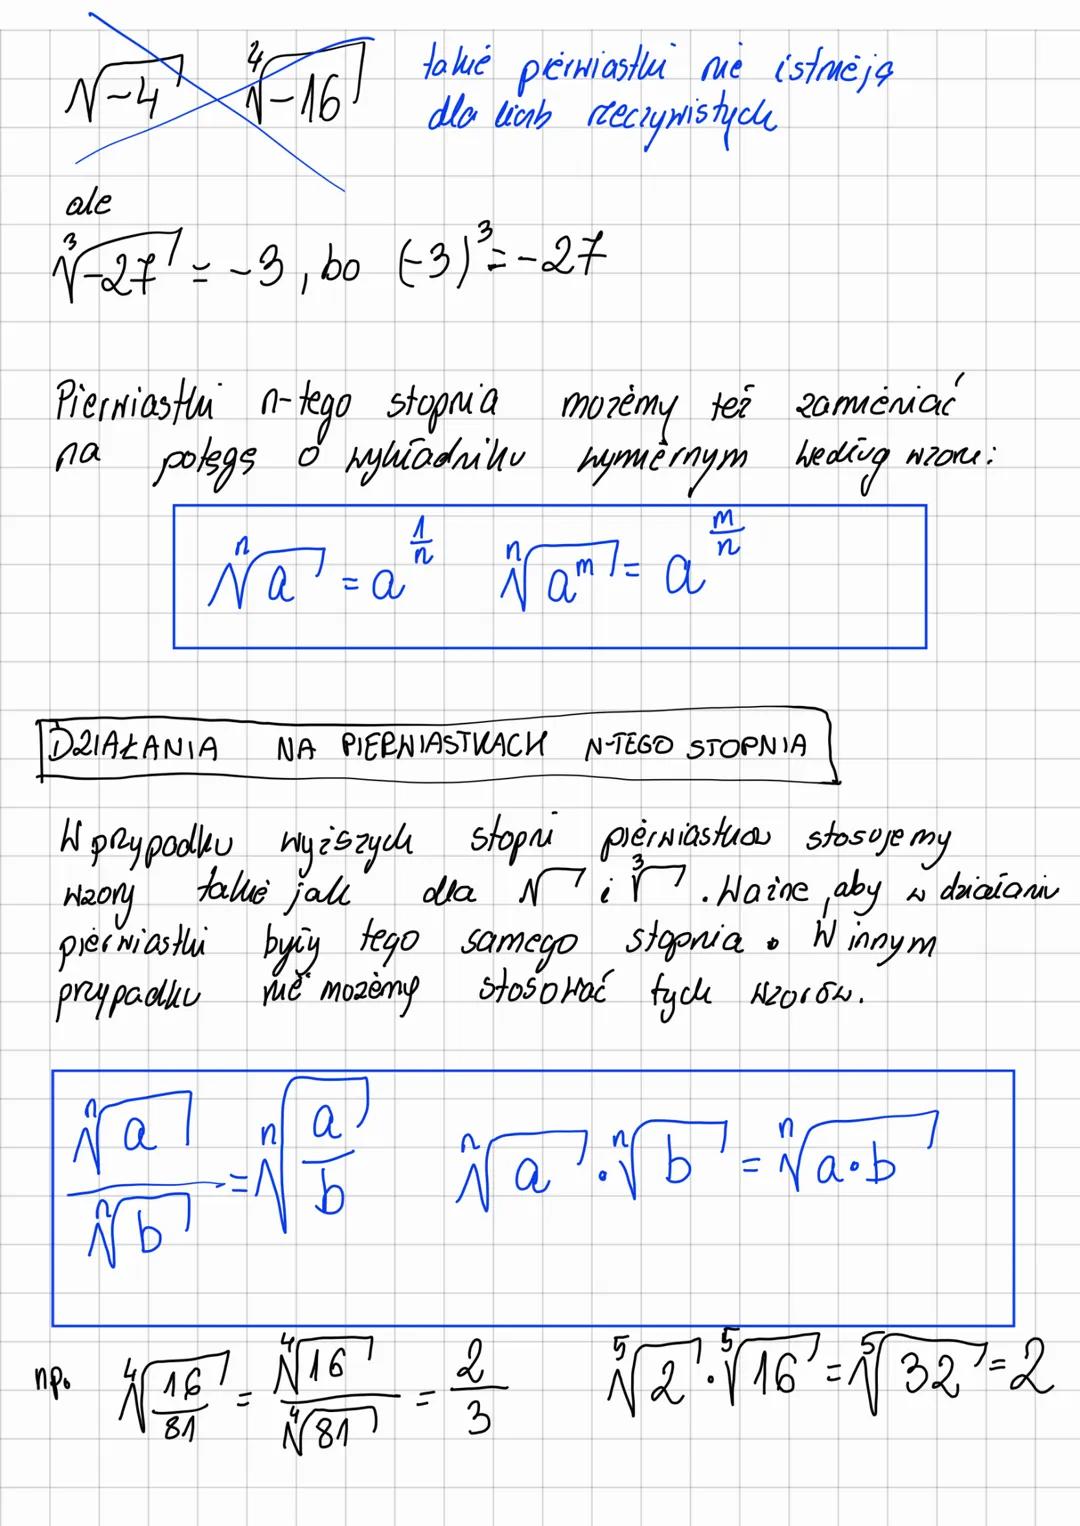 √-4 ⁴√-16 takie pierwiastki nie istnieją
dla liczb rzeczywistych
ale
³√-27 = -3, bo (-3)³ = -27
Pierwiastki n-tego stopnia możemy też zamieniać
na potęgę o wykładniku wymiernym według wzoru:
ⁿ√a = a^(1/n) ⁿ√(a^m) = a^(m/n)
DZIAŁANIA NA PIERWIASTKACH N-TEGO STOPNIA
W przypadku wyższych stopni pierwiastków stosujemy
wzory takie jak dla √ i ³√. Ważne, aby w działaniu
pierwiastki były tego samego stopnia. W innym
przypadku nie możemy stosować tych wzorów.
ⁿ√a / ⁿ√b = ⁿ√(a/b) ⁿ√a · ⁿ√b = ⁿ√(a·b)
np. ⁴√(16/81) = ⁴√16 / ⁴√81 = 2/3 ⁵√2 · ⁵√16 = ⁵√32 = 2